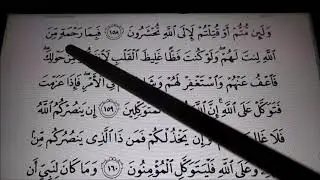 وَلَئِن مُّتُّمْ أَوْ قُتِلْتُمْ لَإِلَى اللَّهِ تُحْشَرُونَ ١٥٨ فَبِمَا رَحْمَةٍ مِّنَ
اللَّهِ لِنتَ لَهُمْ وَلَوْ كُنتَ فَظًّا غَلِيظَ الْقَلْبِ مِنْ حَوْلِكَ
فَاعْفُ عَنْهُمْ وَاسْتَغْفِرْ لَهُمْ فِي الْأَمْرِ فَإِذَا عَزَمْتَ
فَتَوَكَّلْ عَلَى اللَّهِ الْمُتَوَكِّلِينَ ١٥٩ إِن يَنصُرْكُمُ
فَلَا غَالِبَ لَكُمْ وَإِن يَخْذُلْكُمْ فَمَن ذَا الَّذِي يَنصُرُكُم
وَعَلَى اللَّهِ فَلْيَتَوَكَّلِ الْمُؤْمِنُونَ ١٦٠ وَمَا كَانَ لِنَبِيٍّ أَن